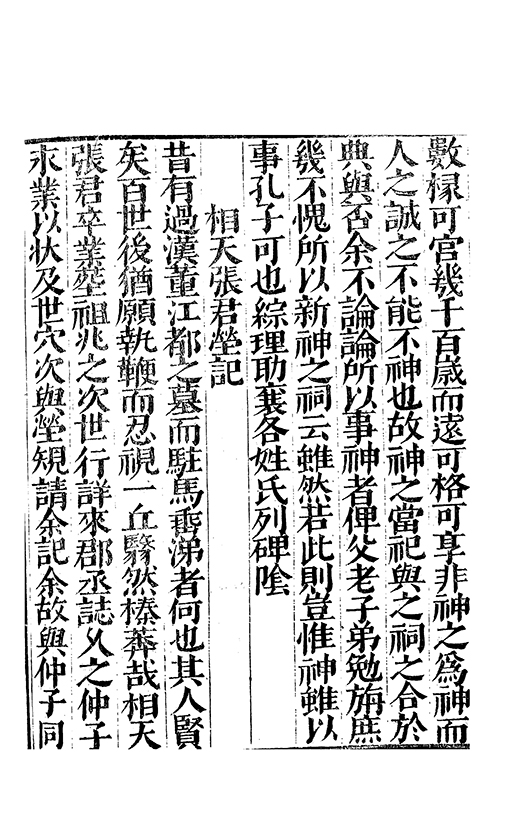 數椽可宮幾千百歲而遠可格可享非神之爲神而
人之誠之不能不神也故神之當祀與之祠之合於
典與否余不論論所以事神者俾父老子弟勉旃庶
幾不愧所以新神之祠云雖然若此則豈惟神雖以
事孔子可也綜理助襄各姓氏列碑陰
相天張君塋記
昔有過漢董江都之墓而駐馬垂涕者何也其人賢
矣百世後猶願執鞭而忍視一丘翳然榛莽哉相天
張君卒業塟祖兆之次世行詳來郡丞誌乆之仲子
永業以状及世穴次與塋規請余記余故與仲子同